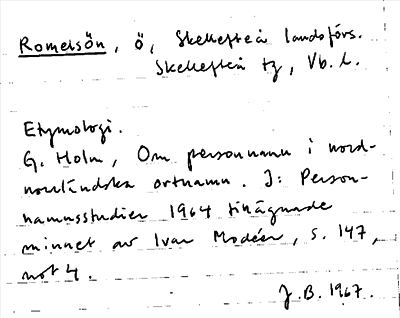 Romelsön, ö, Skellefteå landsförs.
Skellefteå tg, Vb. l.
Etymologi.
G. Holm, Om personnamn i nord-
norrländska ortnamn. I: Person-
namnsstudier 1964 tillägnade
minnet av Ivar Modéer, s. 147,
not 4.
J. B. 1967.